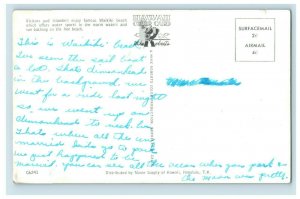 Visitors and islanders enjoy famous Waikiki beach,
which offers water sports in the warm waters and
sun bathing on the hot beach.
SURFACEMAIL
2¢
AIRMAIL
4¢
This is Waikiki beach
Ive seen the sail boat
a lot. Thats diamondhead
in the background. we
went for a ride last night
so we went up on
diamondhead to neck
Thats where all the
married. Dads go to
we just happened to be
married. you can see all the ocean when you park &
the moon was pretty.
Distributed by Movie Supply of Hawaii, Honolulu, T.H.